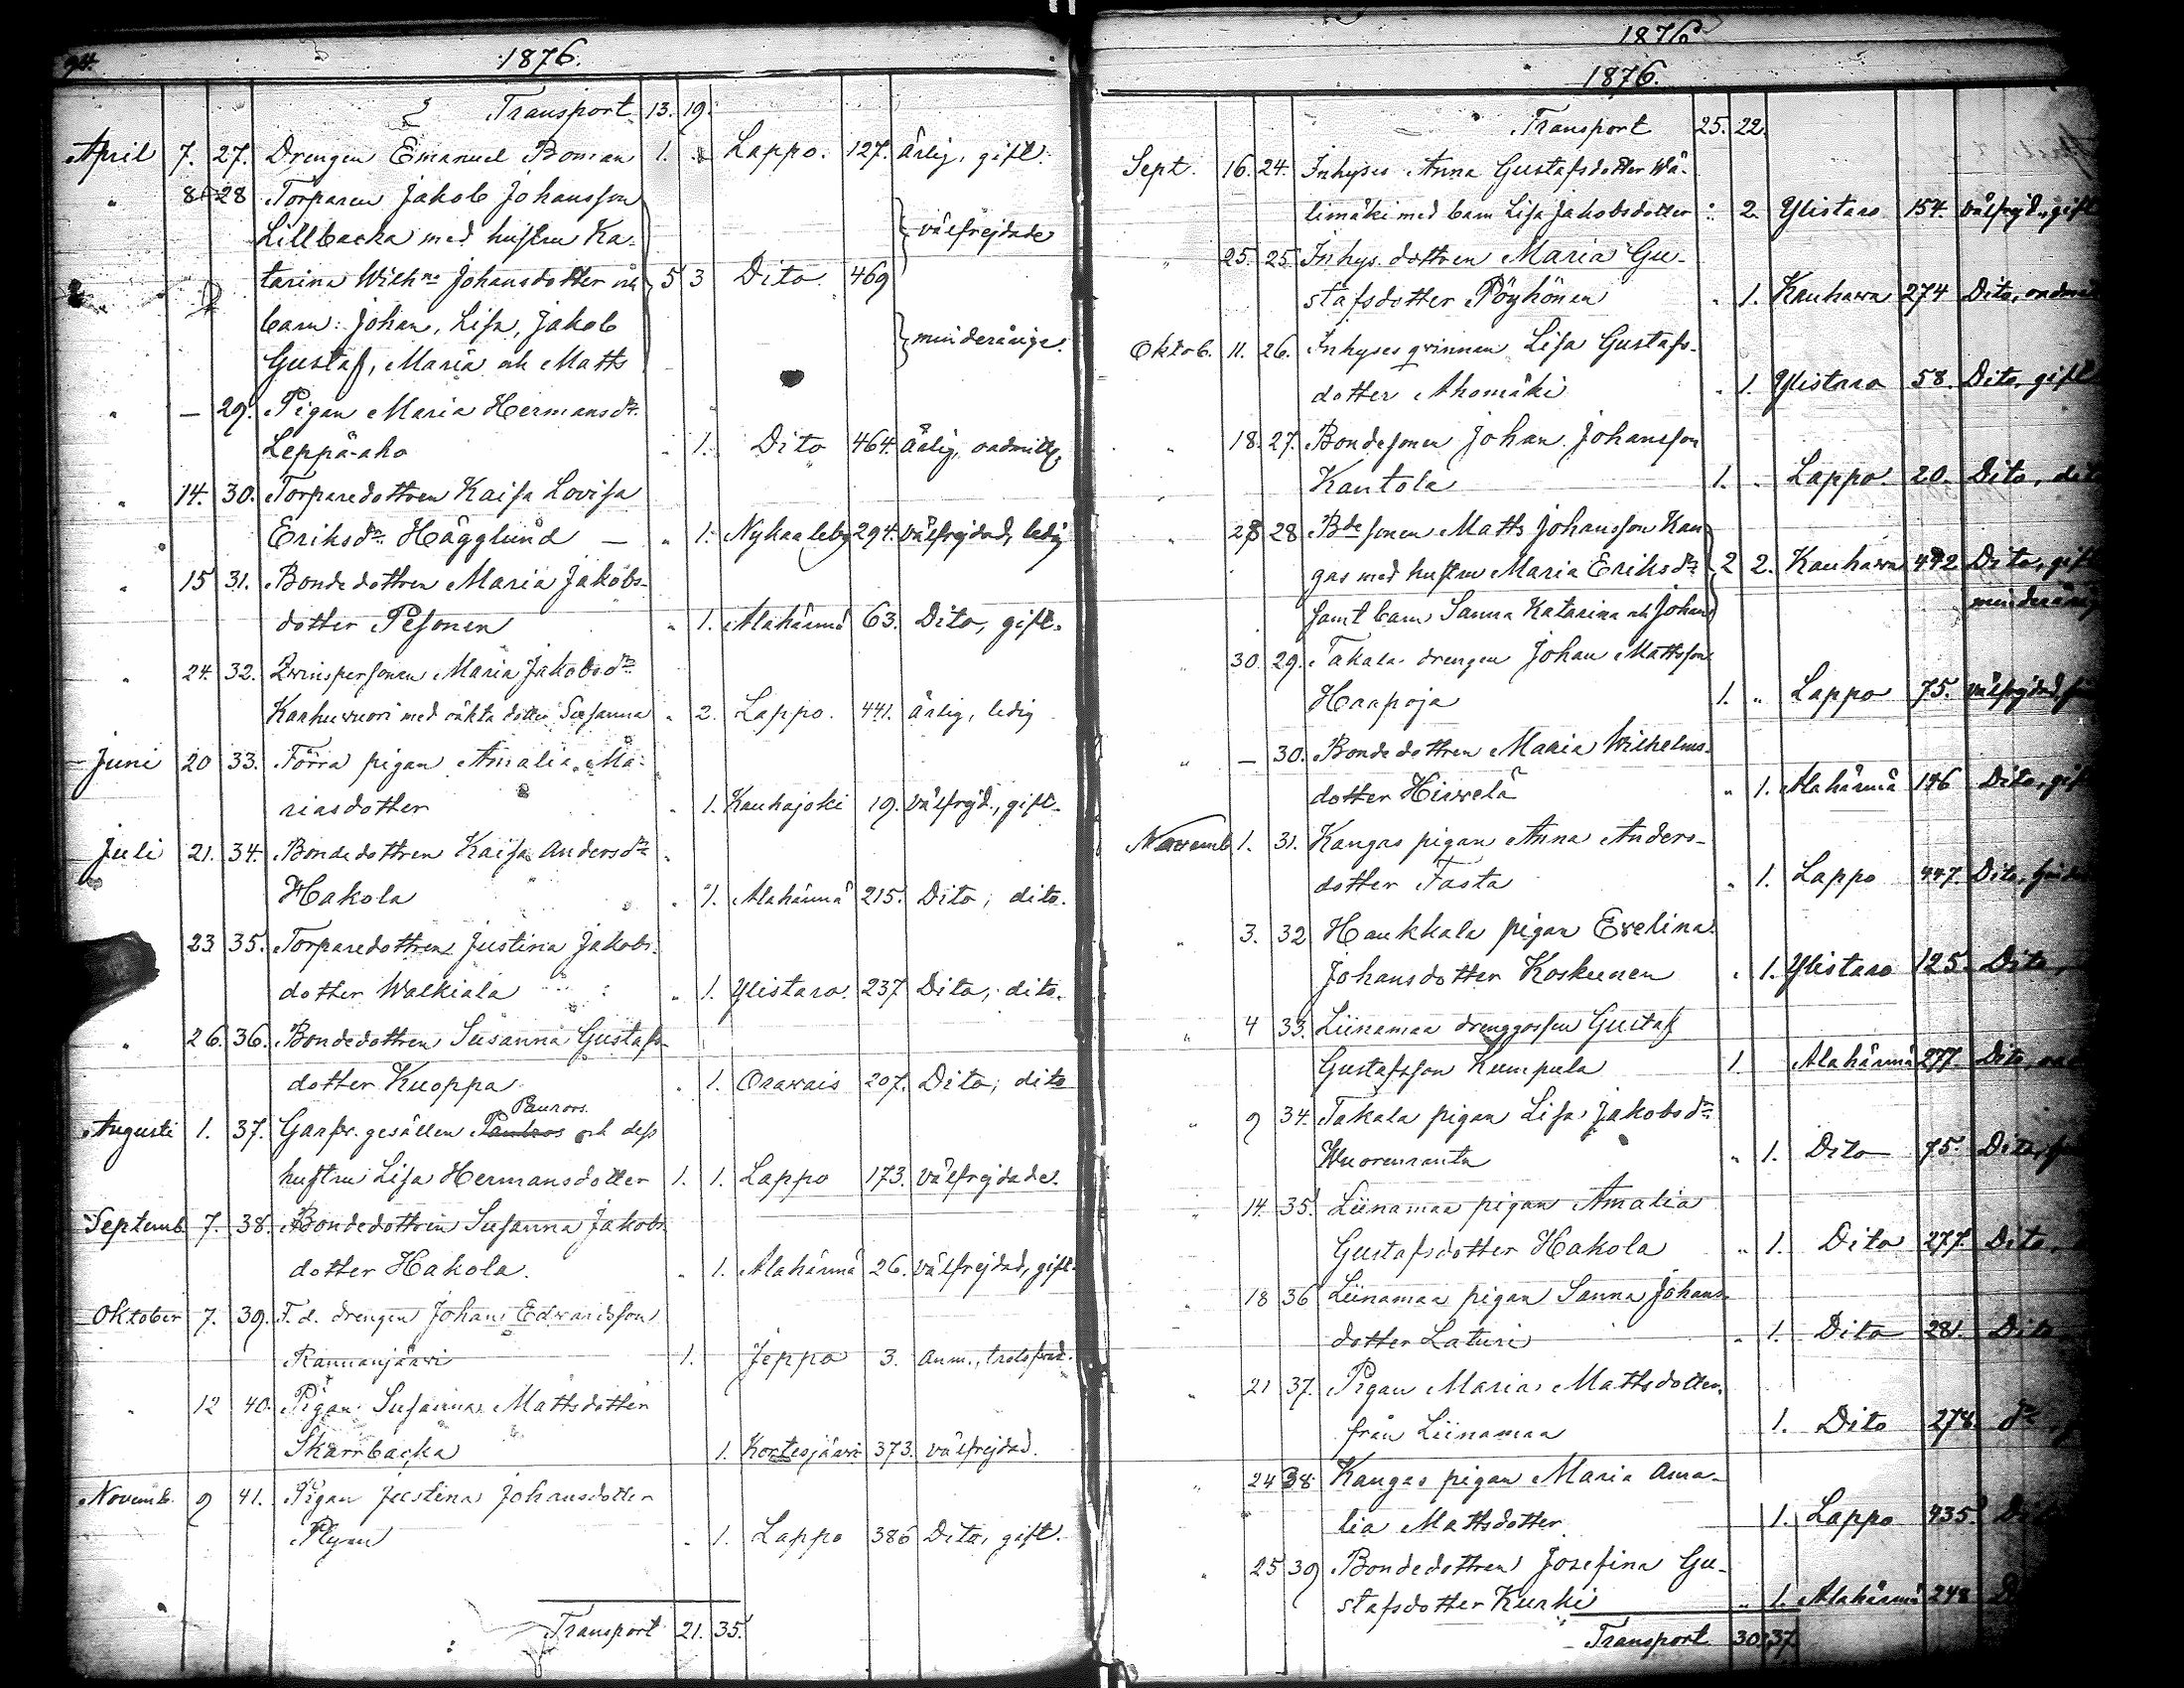 94. 1876.
Transport 13. 19.
April 7. 27. Drengen Emanuel Boman 1. „ Lappo. 127. Ärlig, gift.
„ 8 28 Torparen Jakob Johansson
Lillbacka med hustru Ka- välfrejdade
tarina Wilhna Johansdotter och 5 3 Dito 469
barn: Johan, Lisa, Jakob
Gustaf, Maria och Matts minderårige.
„ — 29. Pigan Maria Hermansdr
Leppä-aho „ 1. Dito 464. Ärlig, oadmitt.
„ 14. 30. Torparedottren Kaisa Lovisa
Eriksdr Hägglund — „ 1. Nykarleby 294. Välfrejdad, ledig
„ 15 31. Bondedottren Maria Jakobs-
dotter Pesonen „ 1. Alahärmä 63. Dito, gift.
„ 24. 32. Qvinspersonen Maria Jakobsdr
Karhuvuori med oäkta dotter Susanna „ 2. Lappo. 441. Ärlig, ledig
Juni 20 33. Förra pigan Amalia Ma-
riasdotter „ 1. Kauhajoki 19. Välfrejd., gift.
Juli 21. 34. Bondedottren Kaisa Andersdr
Hakola „ 1. Alahärmä 215. Dito, dito.
23 35. Torparedottren Justina Jakobs-
dotter Walkiala „ 1. Ylistaro. 237 Dito, dito.
„ 26. 36. Bondedottren Susanna Gustafs-
dotter Kuoppa „ 1. Oravais 207. Dito, dito
Paurors.
Augusti 1. 37. Garfv. gesällen och dess
hustru Lisa Hermansdotter 1. 1. Lappo 173. Välfrejdade.
Septemb. 7. 38. Bondedottren Susanna Jakobs-
dotter Hakola. „ 1. Alahärmä 26. Välfrejdad, gift.
Oktober 7. 39. F. d. drengen Johan Edvardsson
Rannanjärvi 1. Jeppo 3. Anm., trolofvad.
„ 12 40. Pigan Susanna Mattsdotter
Skarrbacka 1. Kortesjärvi 373. Välfrejdad.
Novemb. 9 41. Pigan Justina Johansdotter
Plym „ 1. Lappo 386 Dito, gift.
Transport 21. 35.
1876
1876.
Transport 25. 22.
Sept. 16. 24. Inhyses Anna Gustafsdotter Wä-
limäki med barn Lisa Jakobsdotter „ 2. Ylistaro 154. Välfrejd., gift
„ 25. 25. Inhys. dottren Maria Gu-
stafsdotter Pöyhönen „ 1. Kauhava 274 Dito,
Oktob. 11. 26. Inhyses qvinnan Lisa Gustafs-
dotter Ahomäki „ 1. Ylistaro 58. Dito, gift
„ 18. 27. Bondesonen Johan Johansson
Kantola 1. „ Lappo 20. Dito, dito
„ 28 28 Bdesonen Matts Johansson Kan-
gas med hustru Maria Eriksdr 2 2. Kauhava 442 Dito, gift
samt barn Sanna Katarina och Johan minderårig
„ 30. 29. Takala drengen Johan Mattsson
Haapoja 1. „ Lappo 75. Välfrejdad,
„ — 30. Bondedottren Maria Wilhelms-
dotter Hirvelä „ 1. Alahärmä 146 Dito, gift
Novemb. 1. 31. Kangas pigan Anna Anders-
dotter Fasta „ 1. Lappo 447. Dito,
„ 3. 32 Haukkala pigan Evelina
Johansdotter Koskunen „ 1. Ylistaro 125. Dito,
„ 4 33. Liinamaa drenggossen Gustaf
Gustafsson Kumpula 1. Alahärmä 277. Dito,
„ 9 34. Takala pigan Lisa Jakobsdr
Wuorenranta „ 1. Dito 75. Dito,
„ 14. 35. Liinamaa pigan Amalia
Gustafsdotter Hakola „ 1. Dito 277. Dito,
„ 18 36 Liinamaa pigan Sanna Johans-
dotter Laturi „ 1. Dito 281. Dito
„ 21 37. Pigan Maria Mattsdotter
från Liinamaa 1. Dito 278. dr
„ 24 38. Kangas pigan Maria Ama-
lia Mattsdotter 1. Lappo 435.
„ 25 39 Bondedottren Josefina Gu-
stafsdotter Kurki „ 1. Alahärmä 248
Transport 30. 37